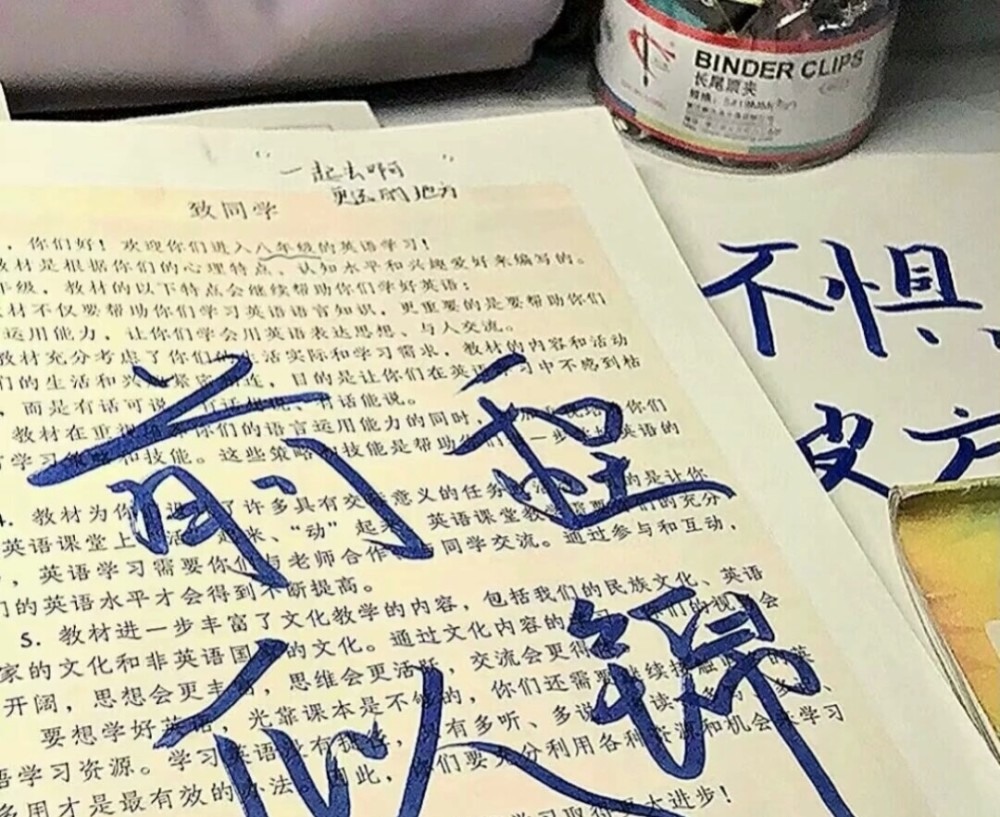 BINDER CLIPS
长尾票夹
"一起去啊
更远的地方"
致同学
，你们好！欢迎你们进入八年级的英语学习！
教材是根据你们的心理特点、认知水平和兴趣爱好来编写的。
年级，教材的以下特点会继续帮助你们学好英语：
材不仅要帮助你们学习英语语言知识，更重要的是要帮助你们
运用能力，让你们学会用英语表达思想、与人交流。
教材充分考虑了你们的生活实际和学习需求，教材的内容和活动
们的生活和兴 紧密相连，目的是让你们在英语学习中不感到枯
，而是有话可说、有话 、有话能说。
教材在重 你们的语言运用能力的同时， 你们
学习策略和技能。这些策略和技能是帮助你们 一步 英语的
4. 教材为你 了许多具有交际意义的任务 的是让你
英语课堂上"活"起来、"动"起来。英语课堂教学需要你们的充分
，英语学习需要你们与老师合作、与同学交流。通过参与和互动，
们的英语水平才会得到不断提高。
5. 教材进一步丰富了文化教学的内容，包括我们的民族文化、英语
家的文化和非英语国家的文化。通过文化内容的 你们的视野会
开阔，思想会更丰富，思维会更活跃，交流会更得
要想学好英语，光靠课本是不够的，你们还需要继续接触更多的英
语学习资源。学习英语没有捷径，只有多听、多说、多读、多写、
多用才是最有效的办法。因此，你们要充分利用各种资源和机会来学习
学习取得更大进步！
前程
似锦
不惧
方